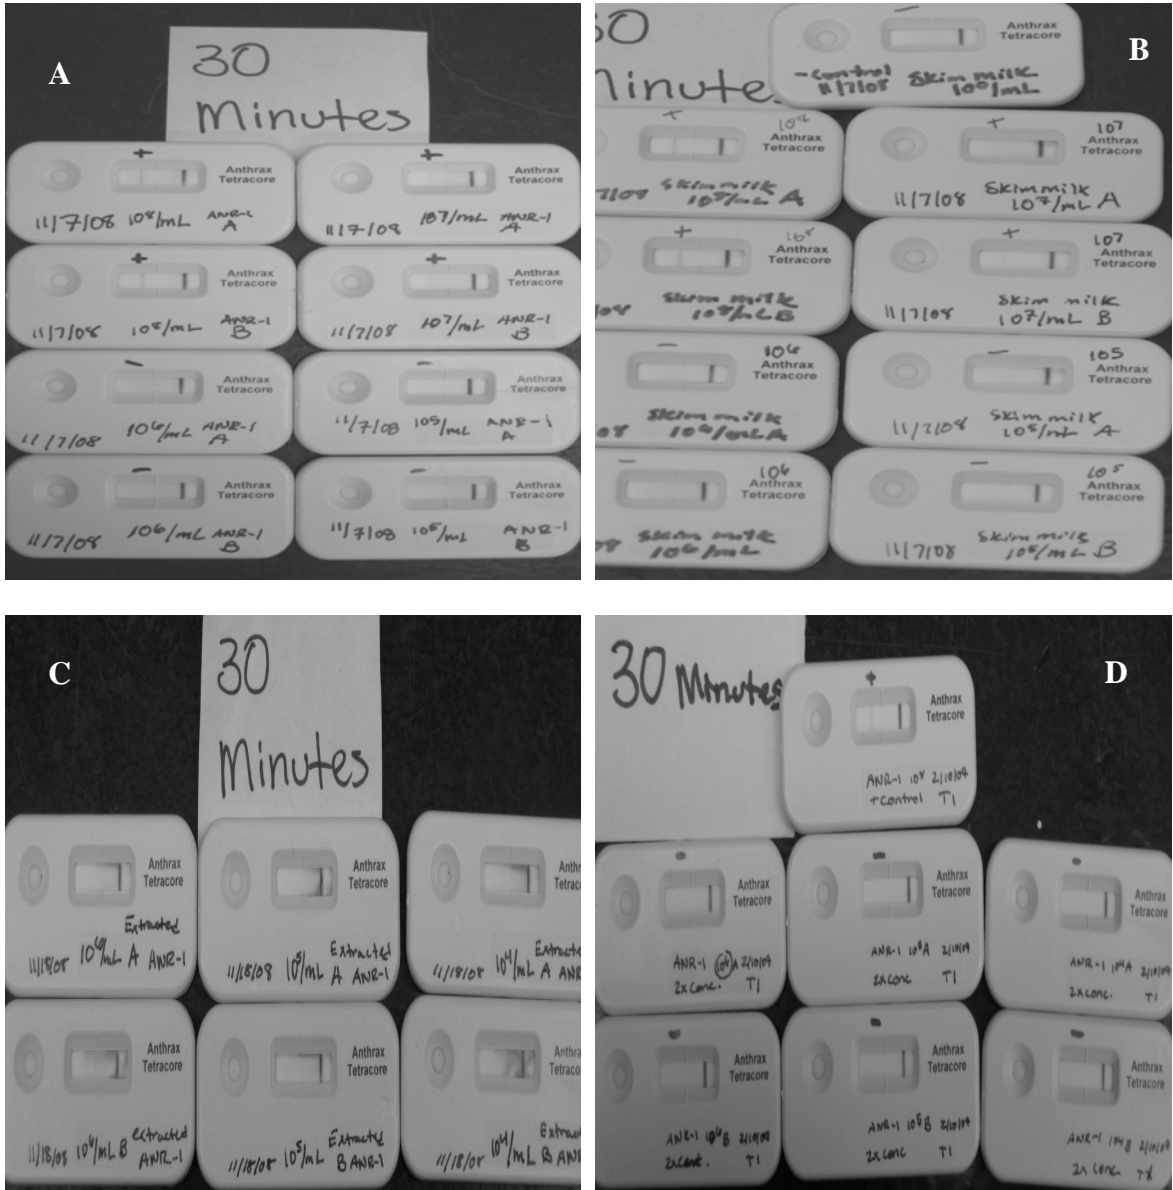 A
30
Minutes
+
Anthrax
Tetracore
11/7/08 10⁸/mL ANR-1
A
+
Anthrax
Tetracore
11/7/08 10⁷/mL ANR-1
A
+
Anthrax
Tetracore
11/7/08 10⁸/mL ANR-1
B
+
Anthrax
Tetracore
11/7/08 10⁷/mL ANR-1
B
-
Anthrax
Tetracore
11/7/08 10⁶/mL ANR-1
A
-
Anthrax
Tetracore
11/7/08 10⁵/mL ANR-1
A
-
Anthrax
Tetracore
11/7/08 10⁶/mL ANR-1
B
-
Anthrax
Tetracore
11/7/08 10⁵/mL ANR-1
B
B
30
Minutes
-
Anthrax
Tetracore
-Control Skim milk
11/7/08 10⁰/mL
+ 10⁸
Anthrax
Tetracore
7/08 Skim milk
10⁸/mL A
+ 10⁷
Anthrax
Tetracore
11/7/08 Skim milk
10⁷/mL A
+ 10⁸
Anthrax
Tetracore
08 Skim milk
10⁸/mL B
+ 10⁷
Anthrax
Tetracore
11/7/08 Skim milk
10⁷/mL B
- 10⁶
Anthrax
Tetracore
08 Skim milk
10⁶/mL A
- 10⁵
Anthrax
Tetracore
11/7/08 Skim milk
10⁵/mL A
- 10⁶
Anthrax
Tetracore
08 Skim milk
10⁶/mL
- 10⁵
Anthrax
Tetracore
11/7/08 Skim milk
10⁵/mL B
C
30
Minutes
Anthrax
Tetracore
Extracted
11/18/08 10⁶/mL A ANR-1
Anthrax
Tetracore
Extracted
11/18/08 10⁵/mL A ANR-1
Anthra
Tetrac
Extracted
11/18/08 10⁴/mL A ANR
Anthrax
Tetracore
extracted
11/18/08 10⁶/mL B ANR-1
Anthrax
Tetracore
Extracted
11/18/08 10⁵/mL B ANR-1
Anthra
Tetrac
Extrac
11/18/08 10⁴/mL B ANR
D
30 Minutes
+
Anthrax
Tetracore
ANR-1 10⁸ 2/10/09
+ control T1
-
Anthrax
Tetracore
ANR-1 10⁶ A 2/10/09
2x conc. T1
-
Anthrax
Tetracore
ANR-1 10⁵A 2/10/09
2x conc T1
-
Anthrax
Tetracore
ANR-1 10⁴A 2/10/09
2x conc. T1
-
Anthrax
Tetracore
ANR-1 10⁶B 2/10/09
2x conc. T1
-
Anthrax
Tetracore
ANR-1 10⁵B 2/10/09
2x conc T1
-
Anthrax
Tetracore
ANR-1 10⁴B 2/10/09
2x conc.